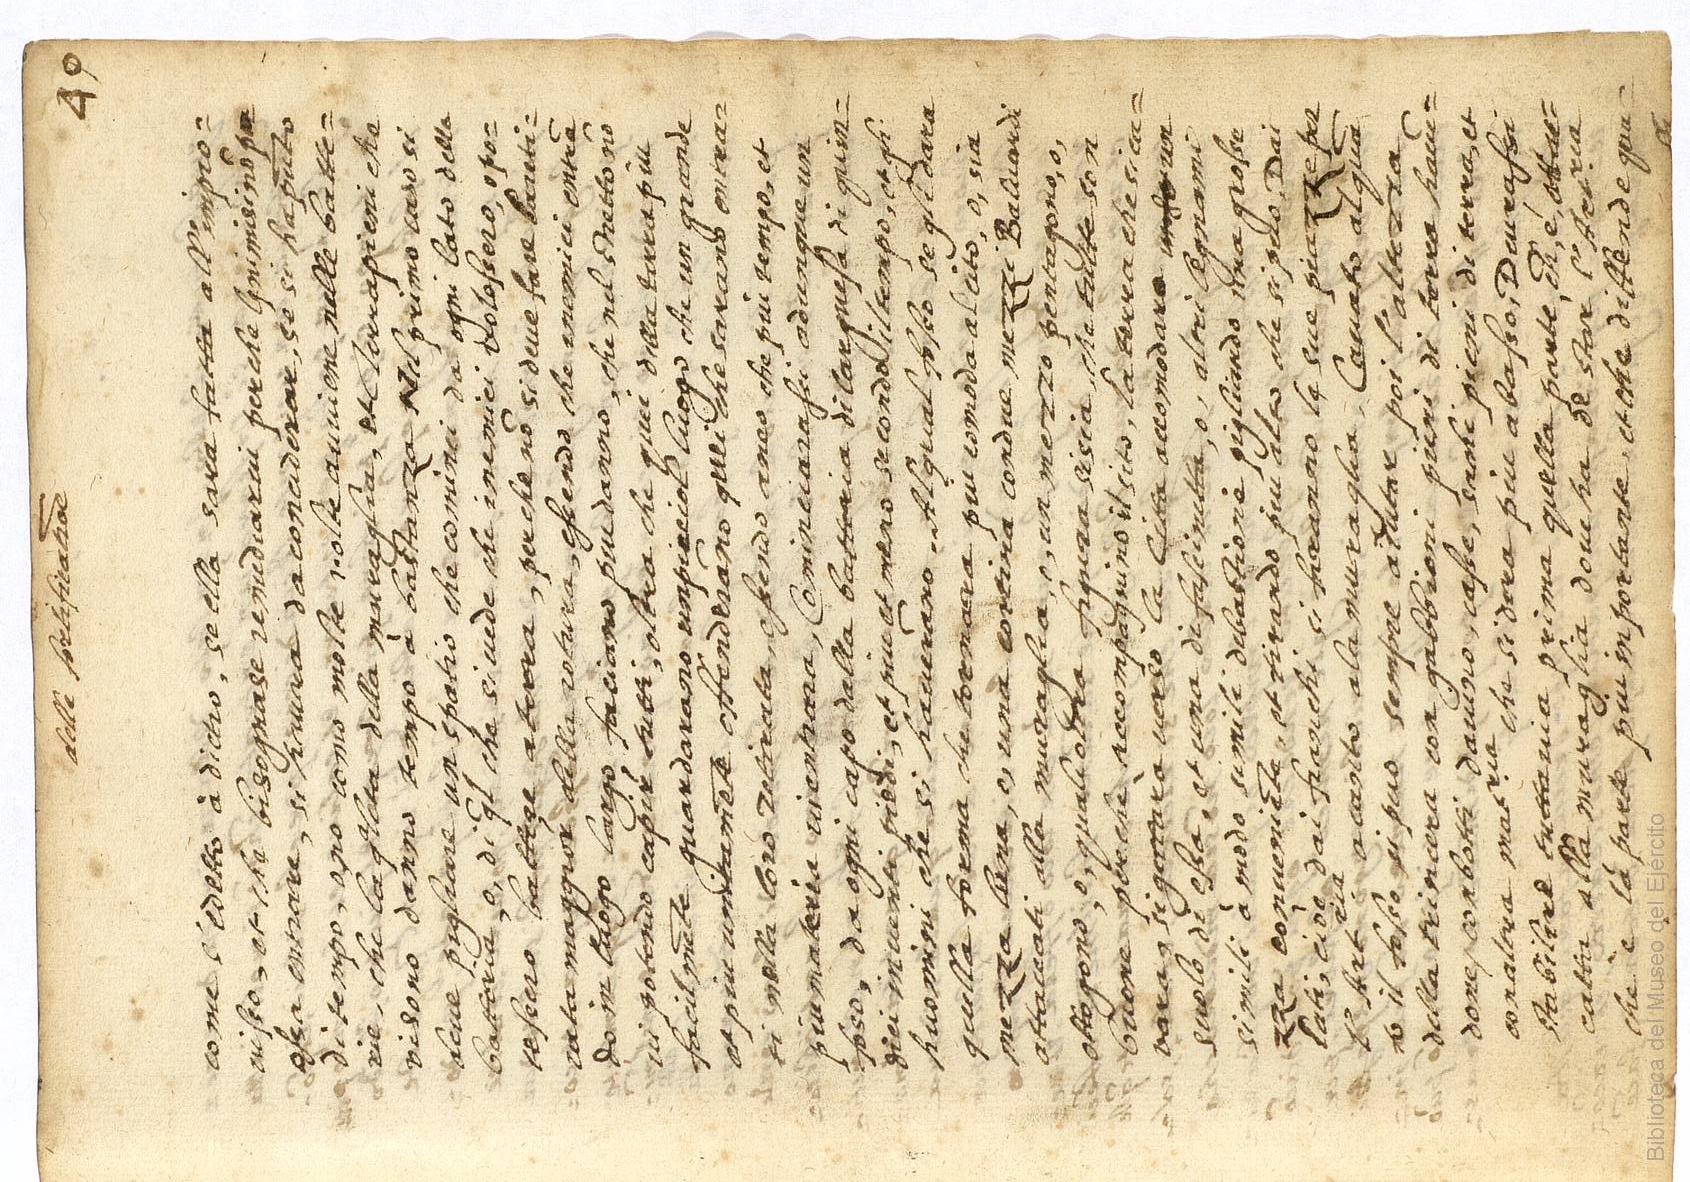 49
delle fortificationi
come s'è detto à dietro, se ella sara fatta all'impro=
uiso, et che bisognase remediarui perche
entrare, si trouua da considerar, se si ha
di tempo, o no como molte uolte auuiene nelle batte=
rie, che la della muraglia, et terrapieni che
uisono danno tempo à bastanza Nel primo caso si
deue pigliare un spatio che cominci da ogni lato della
batteria, o, di ql che si uede che inemici uolessero, o po=
tessero battere aterra, perche nõ si deue fare
rata maggior della rotura, essendo che enimici
do in luogo largo faciano piu danno, che nel stretto nõ
ui potendo capir tutti, oltra che quei della terra piu
facilmẽte guardarano un picciol luogo che un grande
et piu unitamẽte offenderãno quei che sarano entra=
ti nella loro retirata essendo anco che piu tempo, et
piu materia uientrara, Cominciarassi adunque un
fosso, da ogni capo della batteria di largheza di quin=
dici in uenti piedi, et piu et meno secondo il tempo, et gli
huomini che si haueranno, Al qual fosso se gli dara
quella forma che tornara piu comoda al sito, o, sia
mezza luna, o, una cortina con due mezzi Baluardi
attaccati alla muraglia, o, un mezzo pentagono, o,
ottogono, o, qual altra figura si sia, che tutte son
buone purche accompagnino il sito, la terra che si ca=
uara, si gettarà uerso la Citta accomodare un
suolo di essa, et uno di fassinette, o, altri legnami
simili à modo simile debastione pigliando una grosse
zza conueniente, et tirando piu alto che si può, Dai
lati, cioè dai fianchi si faranno le sue piazze per
l'Artria acanto ala muraglia, Cauato alqua
to il fosso si puo sempre aiutar poi l'altezza
della trincera con gabbioni pieni di terra haue=
done, con botti dauino, casse, sachi pieni di terra, et
con altra matria che si dira piu abasso, Deuesassi
stabilire tuttauia prima quella parte, ch'è, attac=
catta alla muraglia doue ha de star l'Artria
che è la parte piu importante, et che diffende qua